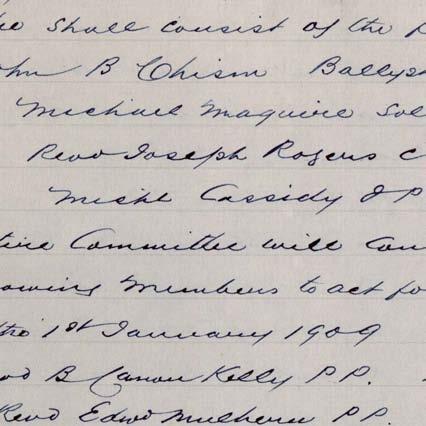 shall consist of the
B Chism Ballysh
Michael Maguire Sol
Revd Joseph Rogers C
Michl Cassidy J P
Committee will con
owing Members to act fo
1st January 1909
B Canon Kelly P P.
Revd Edwd Mulhern P P.